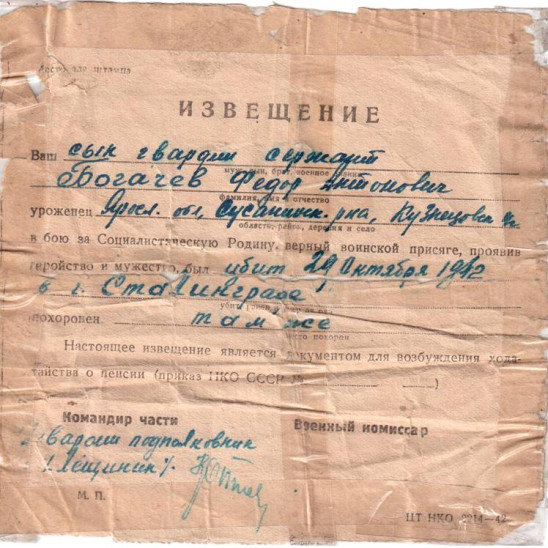 Место для штампа
ИЗВЕЩЕНИЕ
Ваш сын гвардии сержант
муж, сын, брат, военное звание
Богачев Федор Антонович
фамилия, имя и отчество
уроженец Яросл. обл, Сусанинск. р-на, Кузнецовск
область, район, деревня и село
в бою за Социалистическую Родину, верный воинской присяге, проявив
геройство и мужество, был убит 29 Октября 1942
в г. Сталинграде
похоронен там же
место похорон
Настоящее извещение является документом для возбуждения хода-
тайства о пенсии (приказ НКО СССР №
Командир части
Военный комиссар
Гвардии подполковник
М. П.
ЦТ НКО